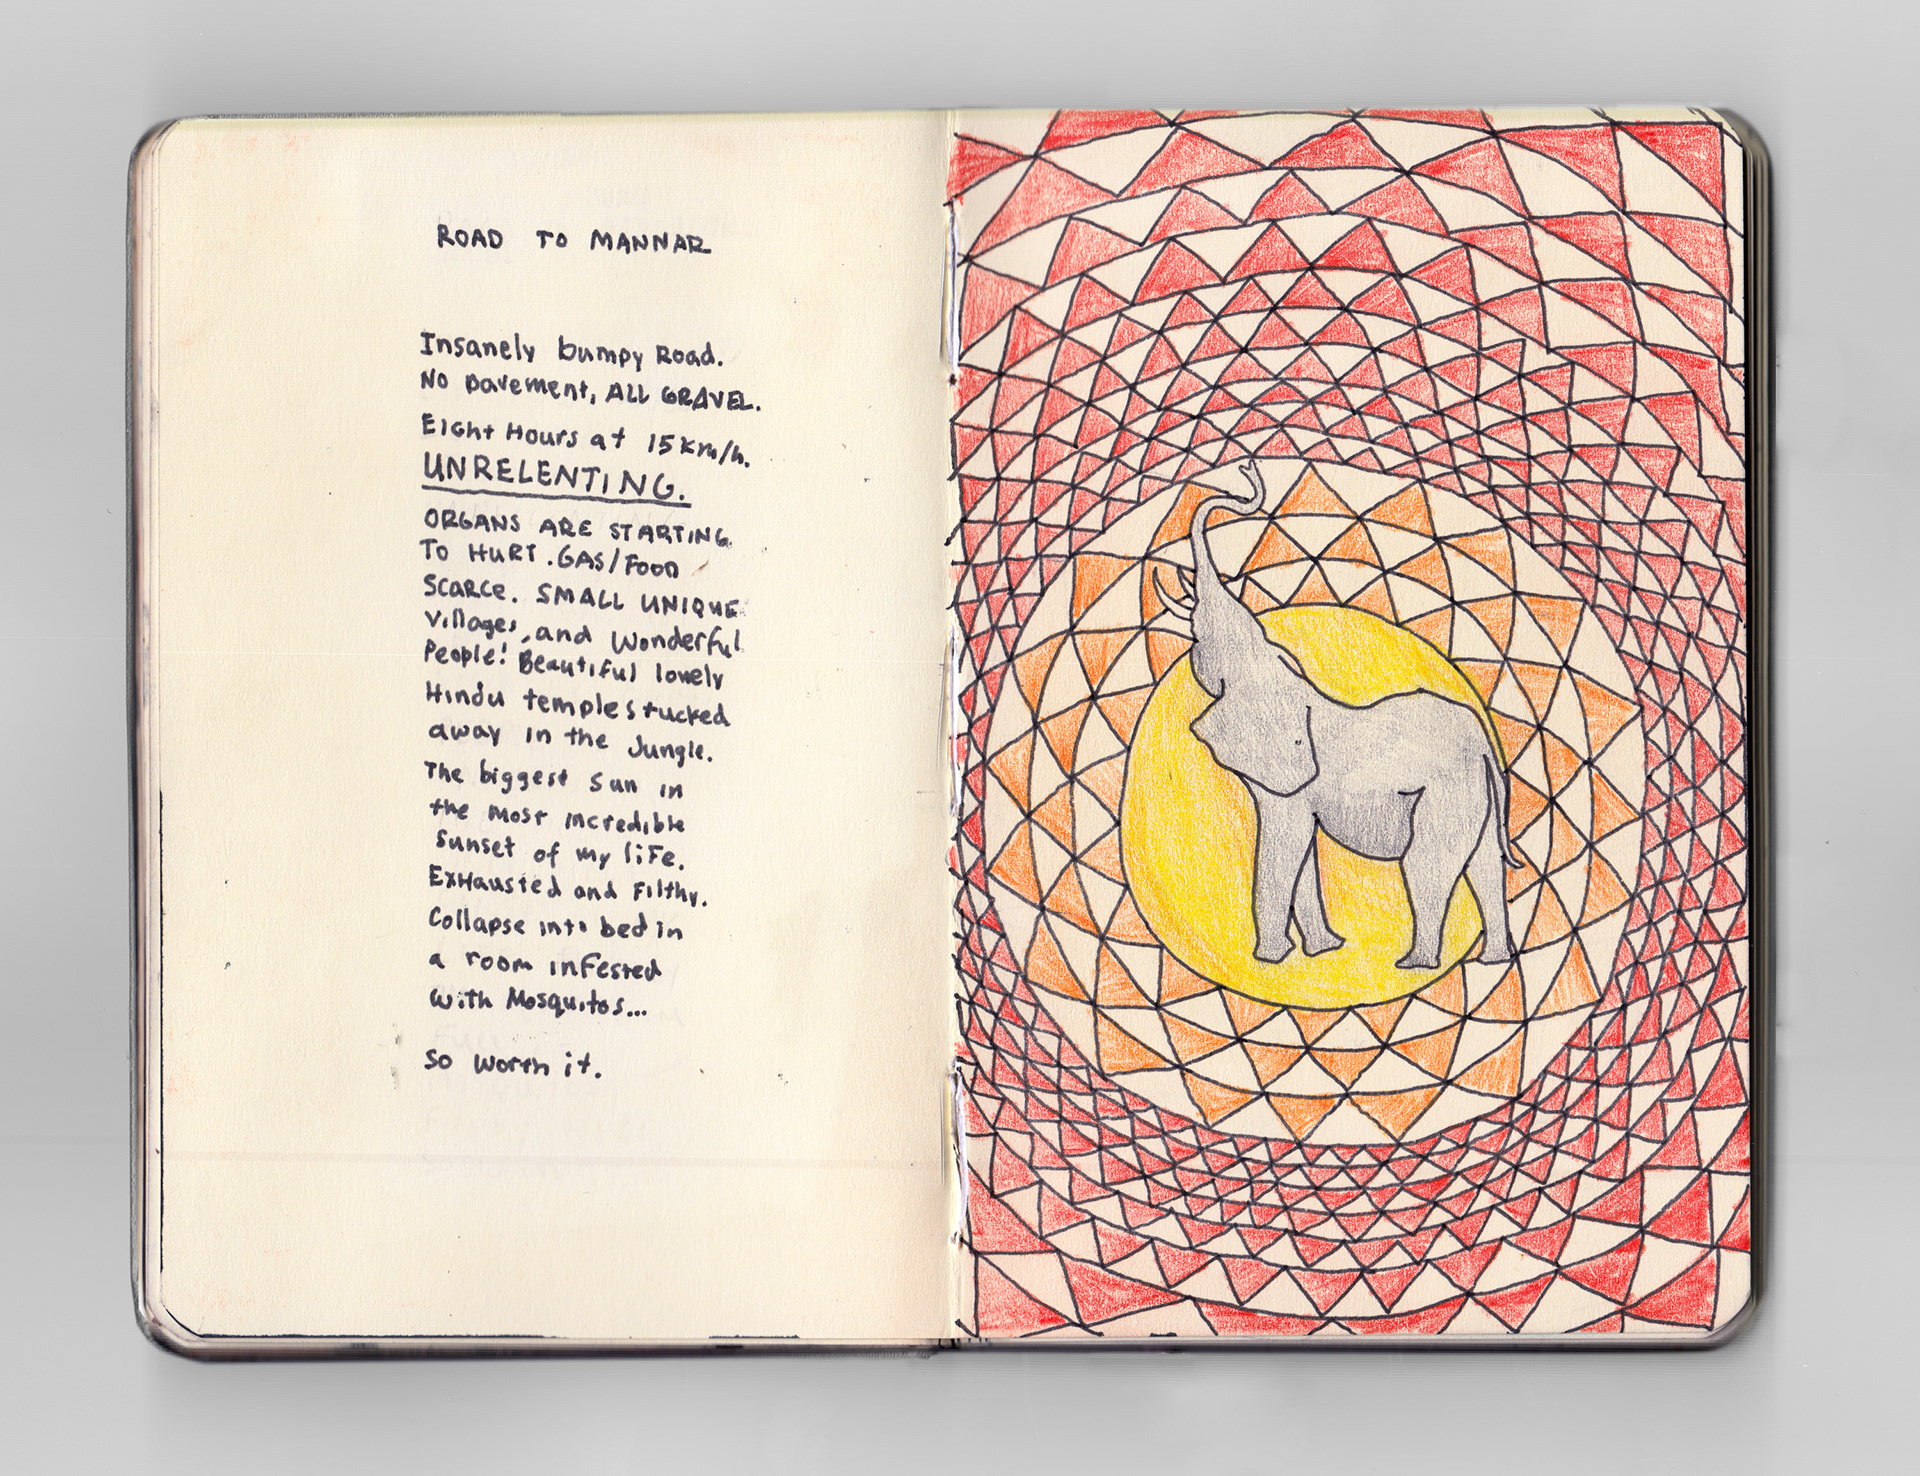 ROAD TO MANNAR
Insanely bumpy Road.
No pavement, ALL GRAVEL.
EIGHt Hours at 15 km/h.
UNRELENTING.
ORGANS ARE STARTING
TO HURT. GAS/FOOD
SCARCE. SMALL UNIQUE
Villages, and Wonderful
People! Beautiful lonely
Hindu temples tucked
away in the Jungle.
The biggest Sun in
the most incredible
Sunset of my life.
Exhausted and Filthy.
Collapse into bed in
a room infested
with Mosquitos...
So worth it.